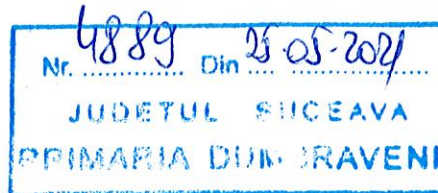 Nr. 4889 Din 25.05.2021
JUDETUL SUCEAVA
PRIMARIA DUMBRAVENI